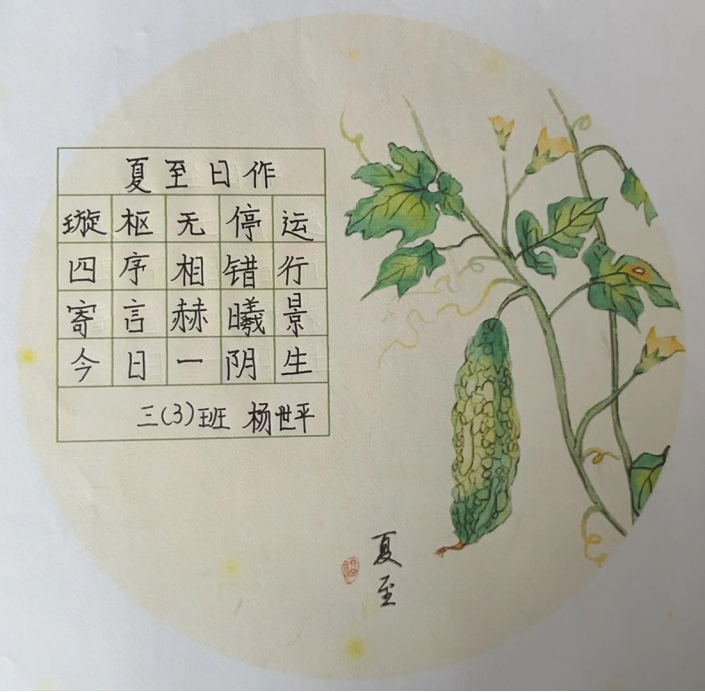 夏至日作
璇枢无停运
四序相错行
寄言赫曦景
今日一阴生
三(3)班 杨世平
夏至